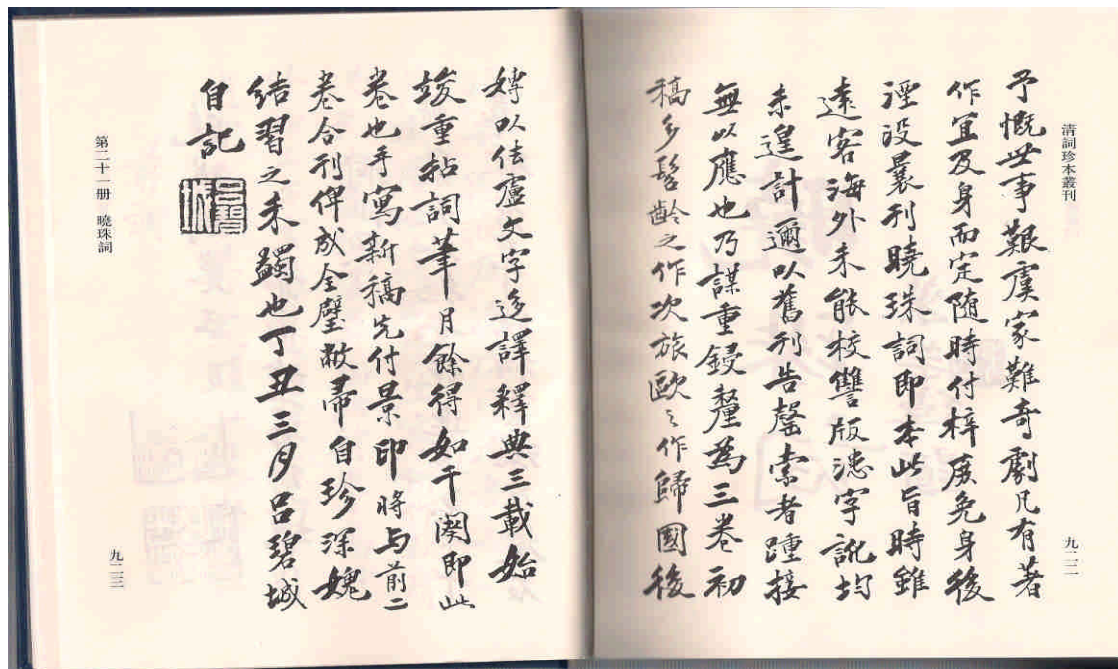 清詞珍本叢刊
予慨世事艱虞家難奇劇凡有著
作宜及身而定隨時付梓庶免身後
湮没曩刊曉珠詞即本此旨時錐
遠客海外未能校讐版漶字訛均
未遑計邇以舊刊告罄索者踵接
無以應也乃謀重鋟釐為三卷初
稿多髫齡之作次旅歐之作歸國後
九二二
嫥以佉盧文字迻譯釋典三載始
竣重拈詞筆月餘得如干闋即此
卷也手寫新稿先付景印將与前二
卷合刊俾成全璧敝帚自珍深媿
結習之未蠲也丁丑三月吕碧城
自記
吕碧城
第二十一册 曉珠詞
九二三